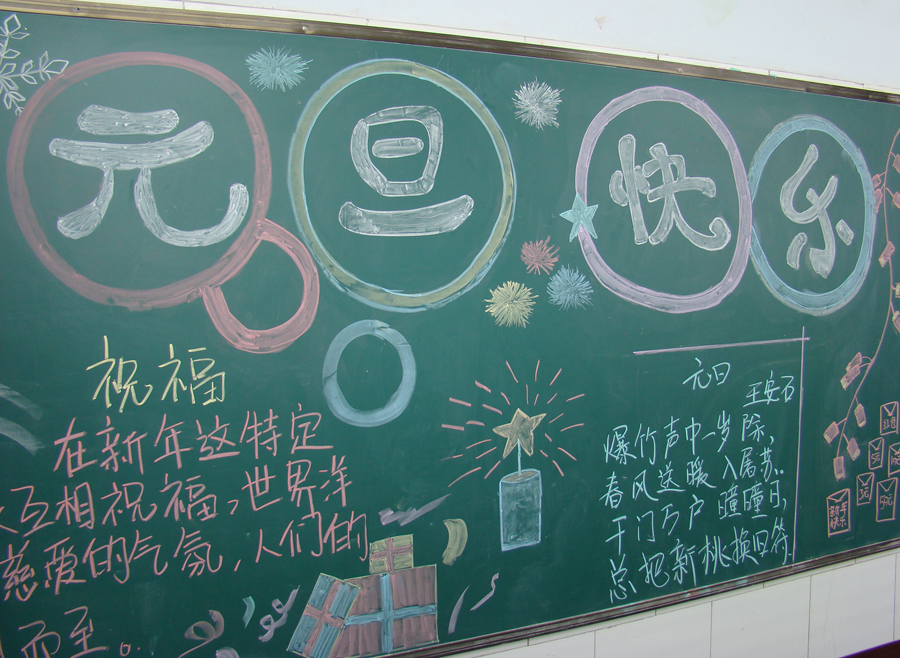 元旦快乐
祝福
在新年这特定
互相祝福,世界洋
慈爱的气氛,人们的
而至。
元日
王安石
爆竹声中一岁除,
春风送暖入屠苏..
千门万户瞳瞳日,
总把新桃换回符.
红包
5元
新年
快乐